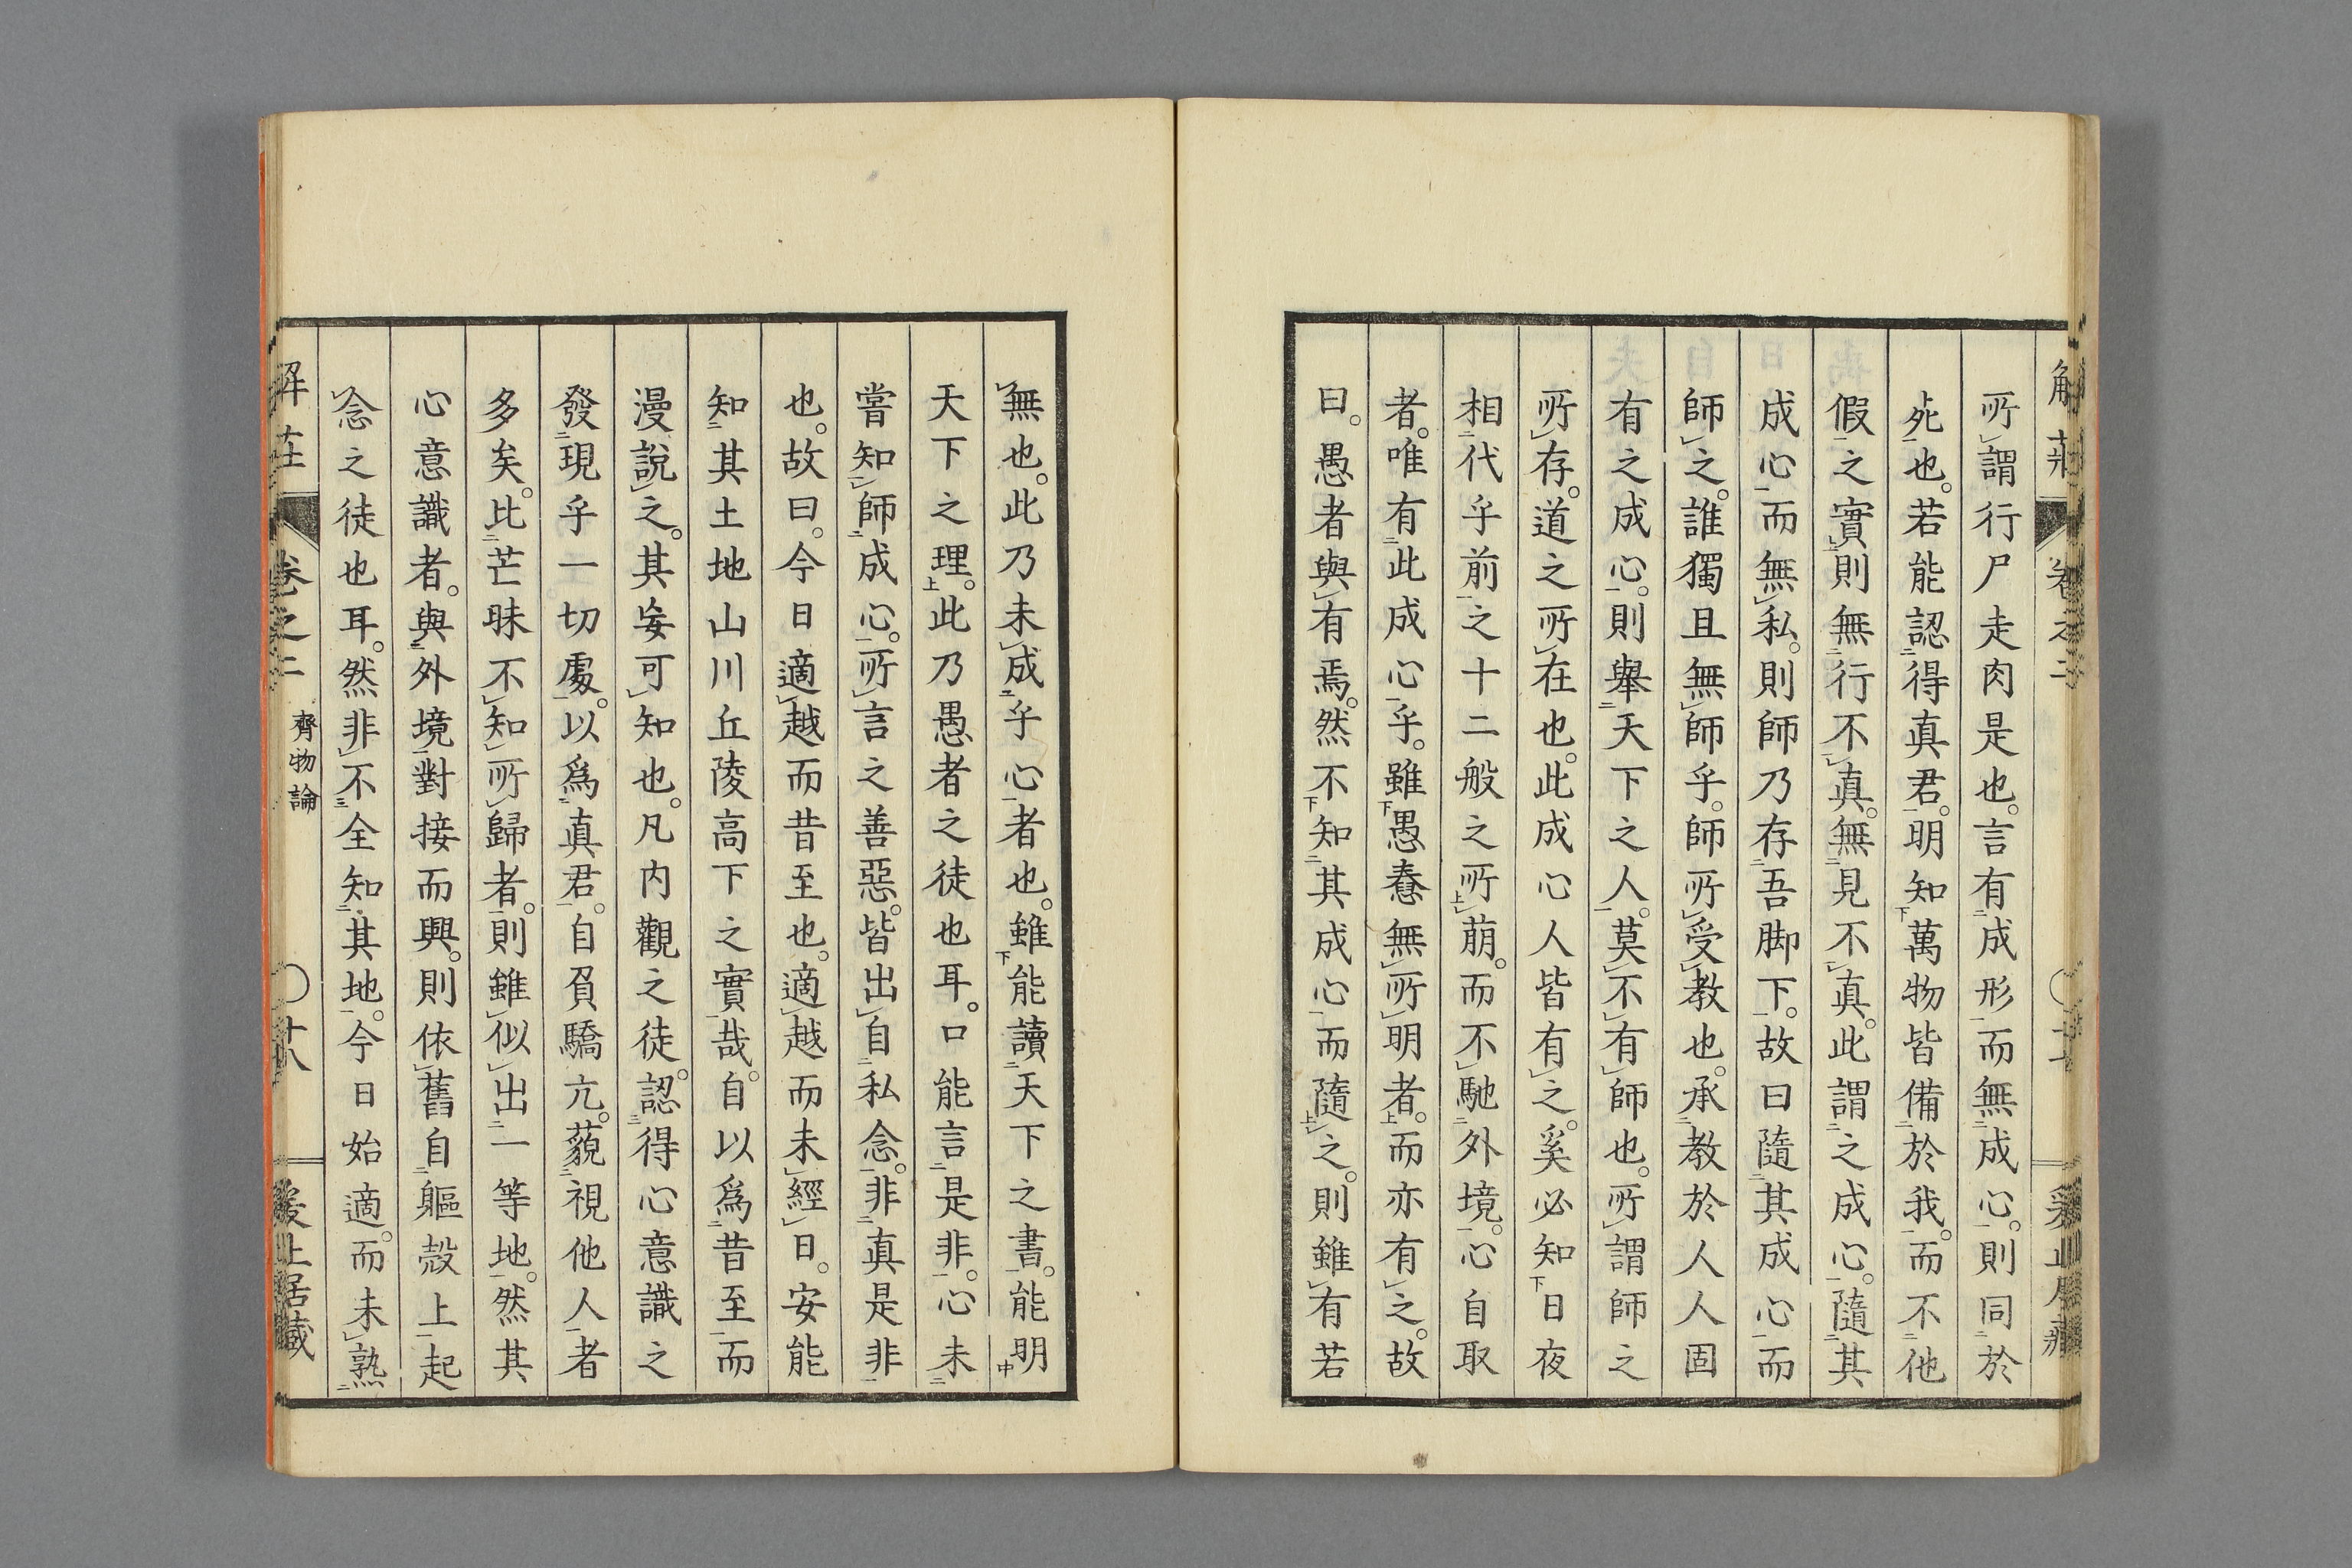 所謂行尸走肉是也。言有成形而無成心。則同於
死也。若能認得真君。明知萬物皆備於我。而不他
假之實則無行不真。無見不真。此謂之成心。隨其
成心而無私。則師乃存吾脚下。故曰隨其成心而
師之。誰獨且無師乎。師所受教也。承教於人人固
有之成心。則舉天下之人。莫不有師也。所謂師之
所存。道之所在也。此成心人皆有之。奚必知日夜
相代乎前之十二般之所萠。而不馳外境。心自取
者。唯有此成心乎。雖愚惷無所明者。而亦有之。故
曰。愚者與有焉。然不知其成心而隨之。則雖有若
無也。此乃未成乎心者也。雖能讀天下之書。能明
天下之理。此乃愚者之徒也耳。口能言是非。心未
嘗知師成心。所言之善惡。皆出自私念。非真是非
也。故曰。今日適越而昔至也。適越而未經日。安能
知其土地山川丘陵高下之實哉。自以爲昔至而
漫說之。其妄可知也。凡内觀之徒。認得心意識之
發現乎一切處。以爲真君。自負驕亢。藐視他人者
多矣。比芒昧不知所歸者。則雖似出一等地。然其
心意識者。與外境對接而興。則依舊自軀殼上起
念之徒也耳。然非不全知其地。今日始適。而未熟
解莊 卷之二 齊物論 〇廿八 爰止居藏